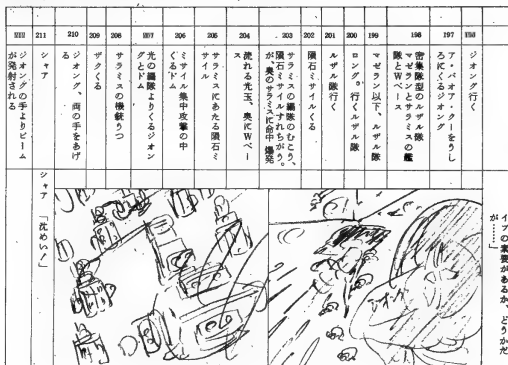 197
ジオング行く
ア・バオア・クーをうし
ろにくるジオング
198
密集隊型のルザル隊
マゼランとサラミスの艦
隊とWベース
199
マゼラン以下、ルザル隊
200
ロング。行くルザル隊
201
ルザル隊行く
202
隕石ミサイルくる
203
サラミスの編隊のむこう、
隕石ミサイルすれちがう。
が、奥のサラミスに命中爆発
204
流れる光玉、奥にWベー
ス
205
サラミスにあたる隕石ミ
サイル
206
ミサイル集中攻撃の中
くるドム
光の編隊よりくるジオン
グとドム
208
サラミスの機銃うつ
209
ザクくる
210
ジオング、両の手をあげ
る
211
シャア
ジオングの手よりビーム
が発射される
イプの素養があるか、どうかだ
が……」
シャア 「沈めい！」
ジオング